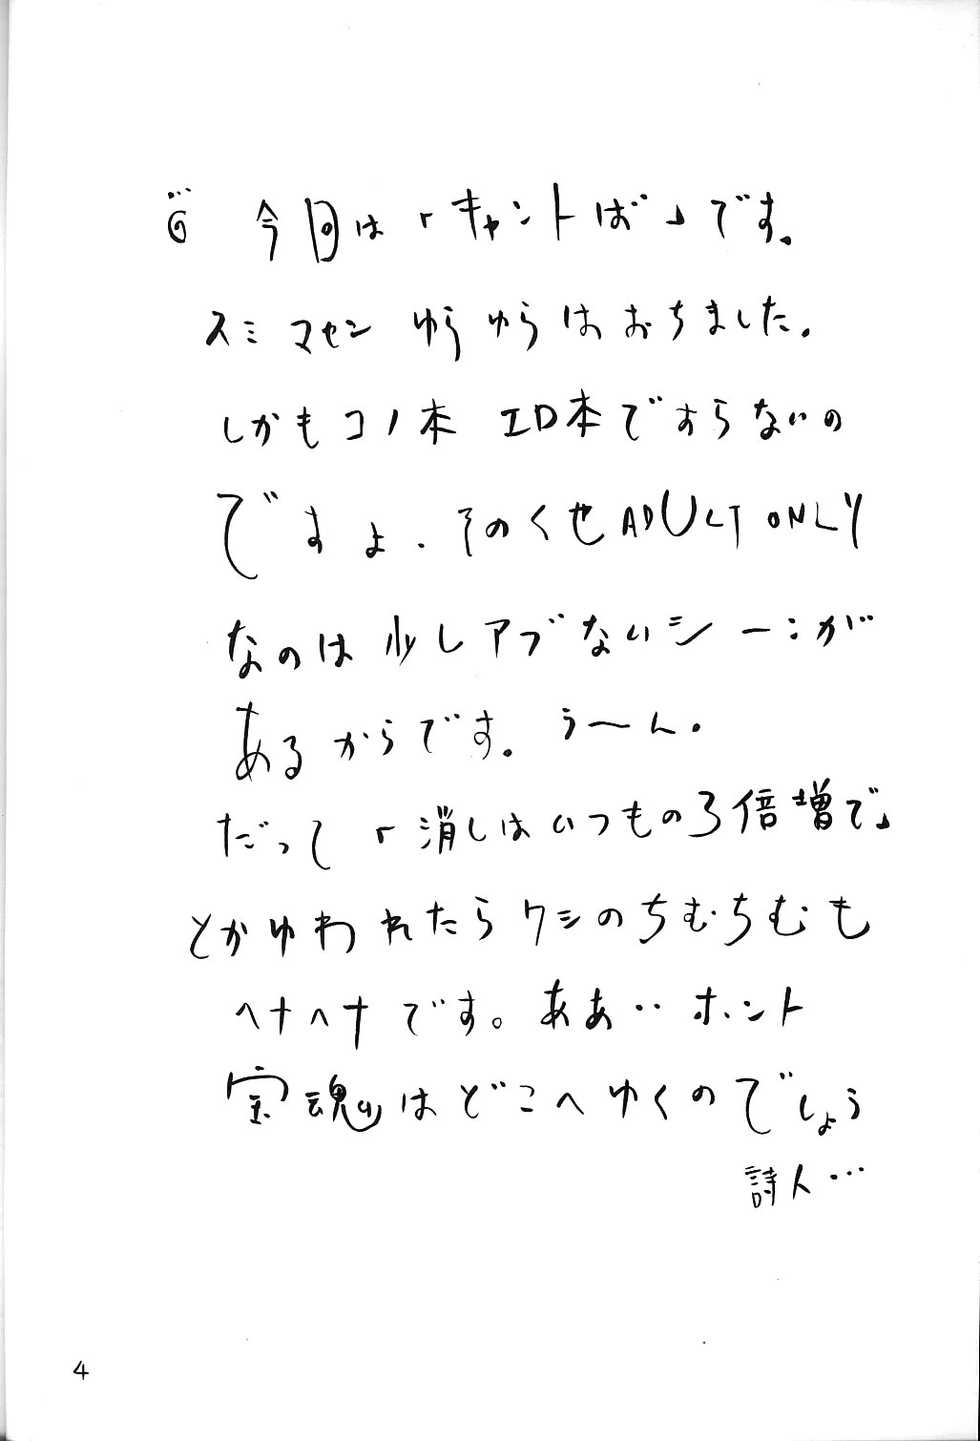 今回は「キャントば」です。
スミマセン ゆうゆうはおちました。
しかもコノ本 エロ本ですらないの
ですよ. そのくせADULT ONLY
なのは少しアブないシーンが
あるからです。う〜ん.
だって「消しはいつもの3倍増で」
とかゆわれたらワシのちむちむも
ヘナヘナです。ああ‥ ホント
宝魂はどこへゆくのでしょう
詩人…
4